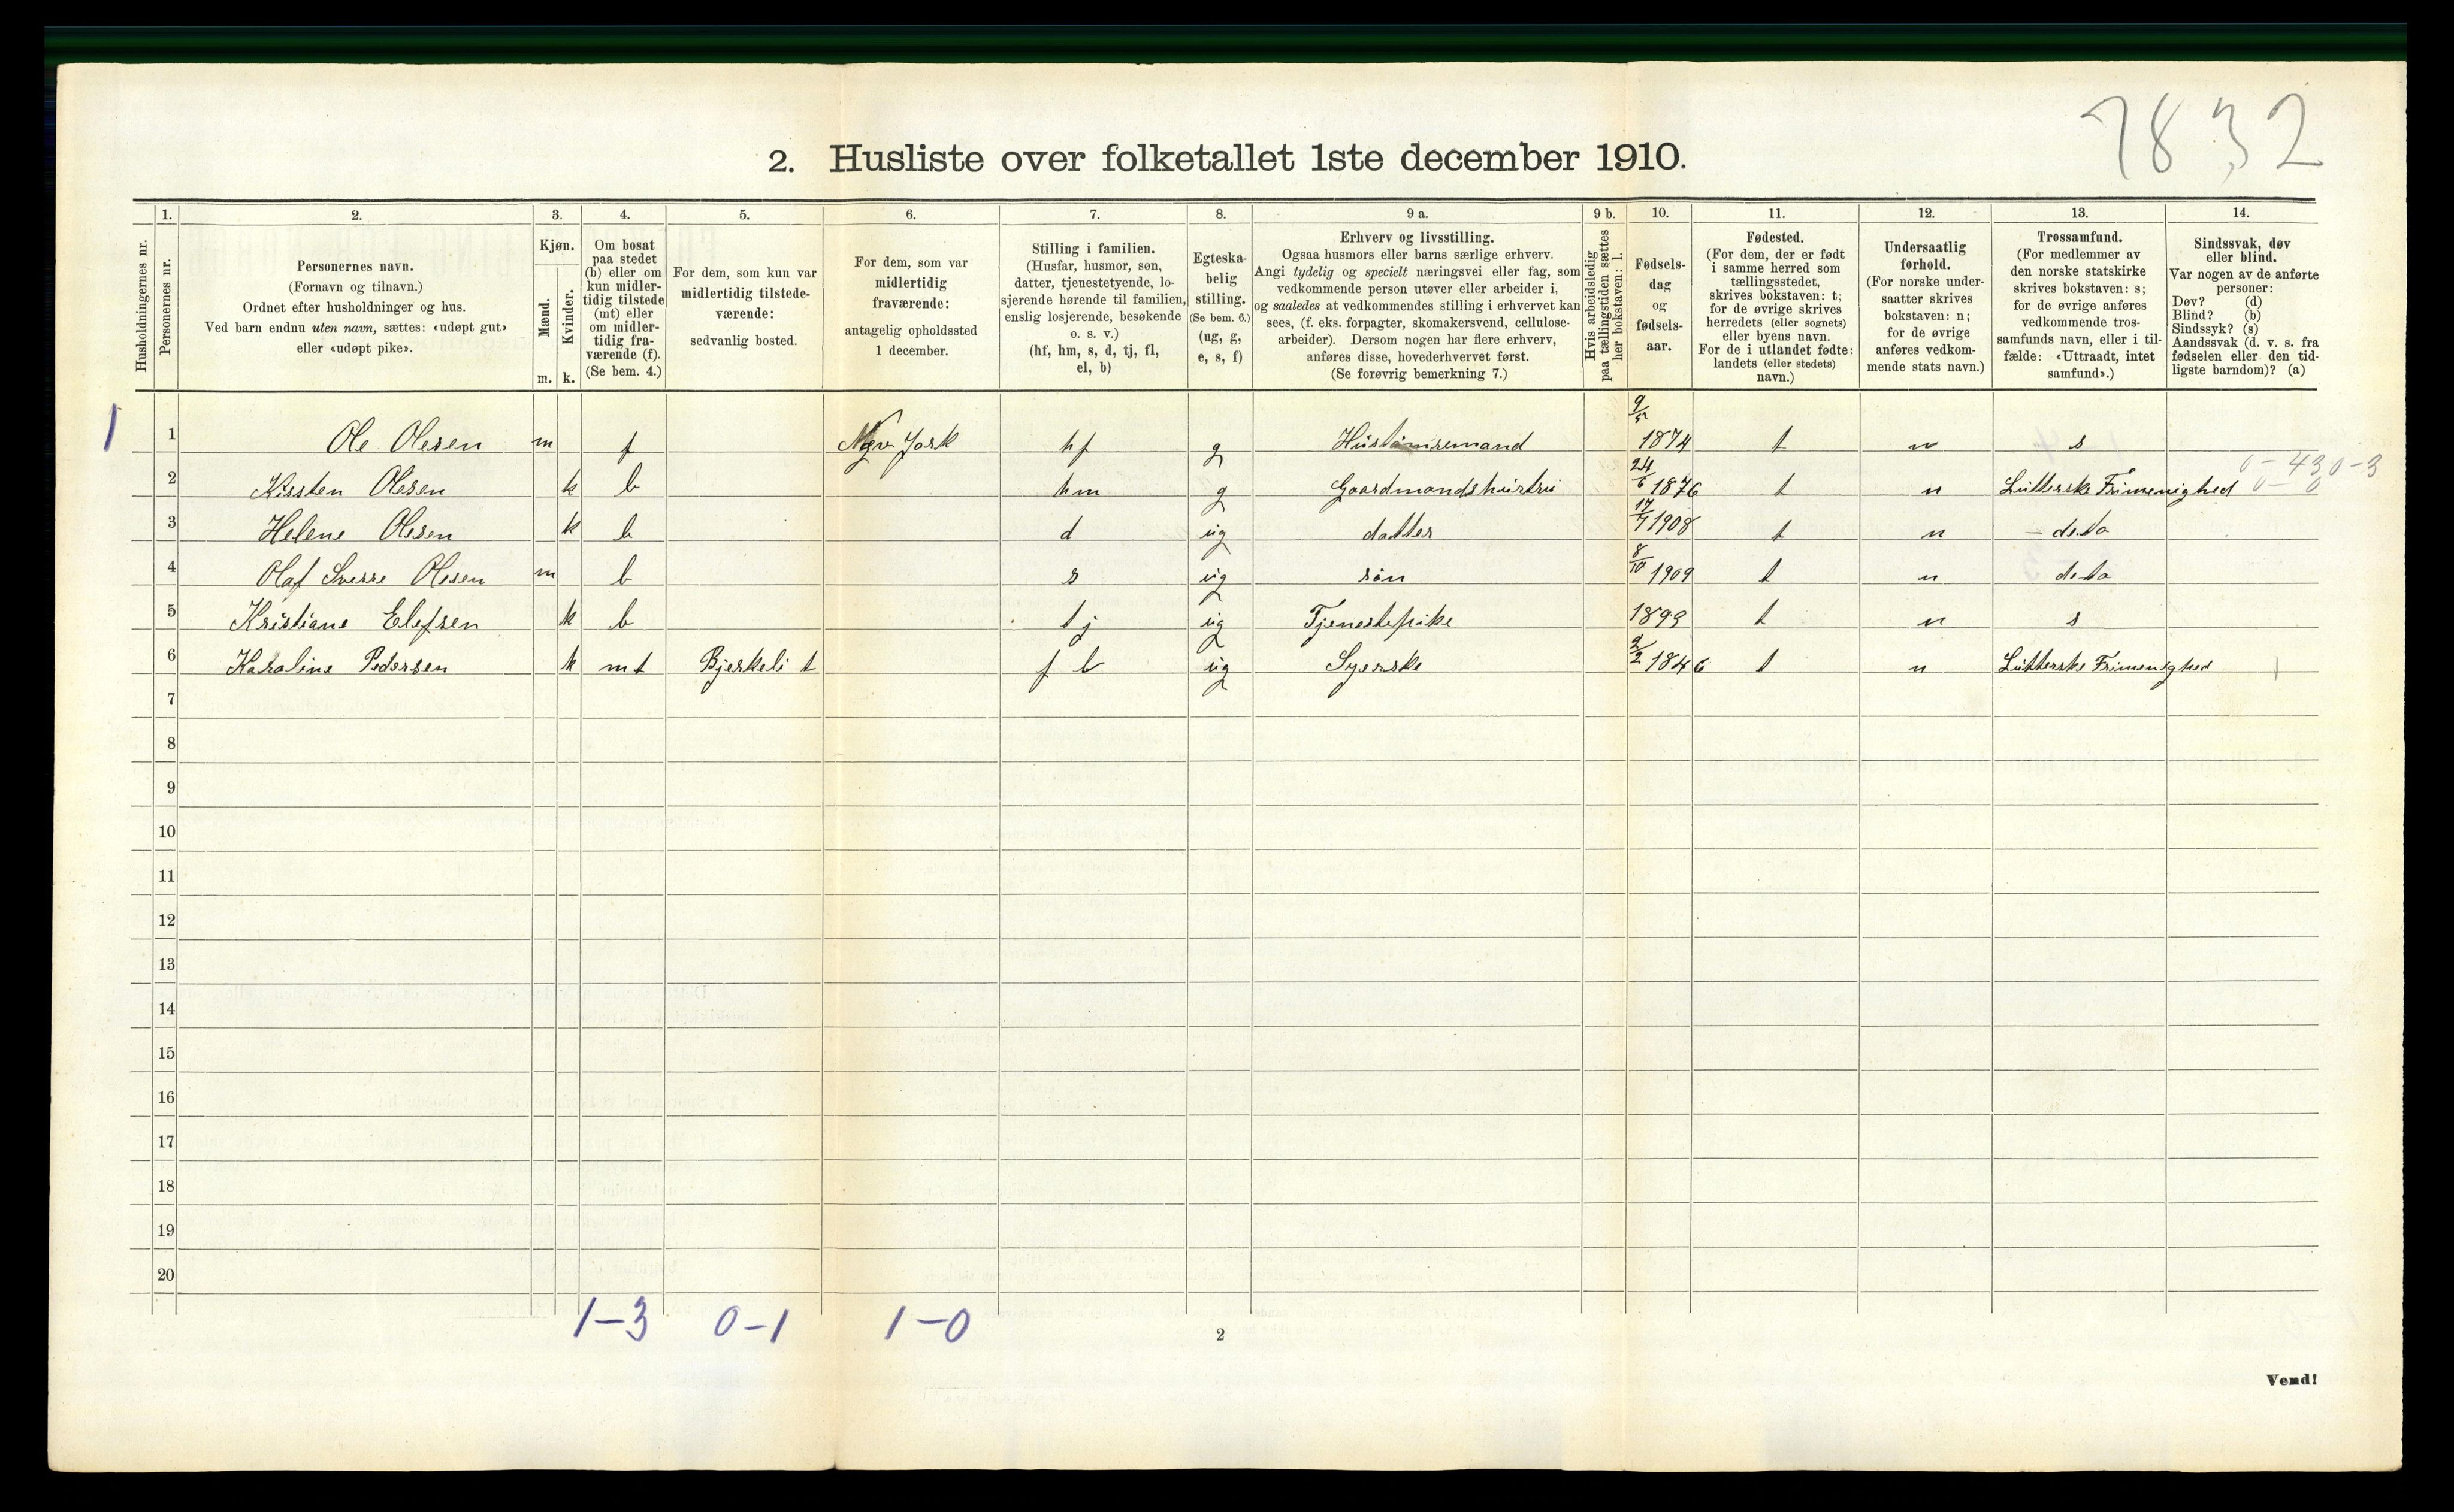 7832
2. Husliste over folketallet 1ste december 1910.
Husholdningernes nr.
1.
Personernes nr.
2.
Personernes navn.
(Fornavn og tilnavn.)
Ordnet efter husholdninger og hus.
Ved barn endnu uten navn, sættes: «udøpt gut»
eller «udøpt pike».
3.
Kjøn.
Mænd.
Kvinder.
m. k.
4.
Om bosat
paa stedet
(b) eller om
kun midler-
tidig tilstede
(mt) eller
om midler-
tidig fra-
værende (f).
(Se bem. 4.)
5.
For dem, som kun var
midlertidig tilstede-
værende:
sedvanlig bosted.
6.
For dem, som var
midlertidig
fraværende:
antagelig opholdssted
1 december.
7.
Stilling i familien.
(Husfar, husmor, søn,
datter, tjenestetyende, lo-
sjerende hørende til familien,
enslig losjerende, besøkende
o. s. v.)
(hf, hm, s, d, tj, fl,
el, b)
8.
Egteska-
belig
stilling.
(Se bem. 6.)
(ug, g,
e, s, f)
9 a.
Erhverv og livsstilling.
Ogsaa husmors eller barns særlige erhverv.
Angi tydelig og specielt næringsvei eller fag, som
vedkommende person utøver eller arbeider i,
og saaledes at vedkommendes stilling i erhvervet kan
sees, (f. eks. forpagter, skomakersvend, cellulose-
arbeider). Dersom nogen har flere erhverv,
anføres disse, hovederhvervet først.
(Se forøvrig bemerkning 7.)
9 b.
Hvis arbeidsledig
paa tællingstiden sættes
her bokstaven: l.
10.
Fødsels-
dag
og
fødsels-
aar.
11.
Fødested.
(For dem, der er født
i samme herred som
tællingsstedet,
skrives bokstaven: t;
for de øvrige skrives
herredets (eller sognets)
eller byens navn.
For de i utlandet fødte:
landets (eller stedets)
navn.)
12.
Undersaatlig
forhold.
(For norske under-
saatter skrives
bokstaven: n;
for de øvrige
anføres vedkom-
mende stats navn.)
13.
Trossamfund.
(For medlemmer av
den norske statskirke
skrives bokstaven: s;
for de øvrige anføres
vedkommende tros-
samfunds navn, eller i til-
fælde: «Uttraadt, intet
samfund».)
14.
Sindssvak, døv
eller blind.
Var nogen av de anførte
personer:
Døv? (d)
Blind? (b)
Sindssyk? (s)
Aandssvak (d. v. s. fra
fødselen eller den tid-
ligste barndom)? (a)
1 1 Ole Olesen m f New York hf g 1874 t n s
2 Kirsten Olesen k b hm g Gaardmandshustru 24/6 1876 t n Lutterske Frimenighed
3 Helene Olesen k b d ug datter 17/7 1908 t n - deto
4 Olaf Sverre Olesen m b s ug søn 8/10 1909 t n deto
5 Kristiane Elefsen k b tj ug Tjenestepike 1893 t n s
6 Karoline Pedersen k mt Bjerkeli t f b ug Syerske 2/2 1846 t n Lutterske Frimenighed
7
8
9
10
11
12
13
14
15
16
17
18
19
20
1-3 0-1 1-0
2
Vend!